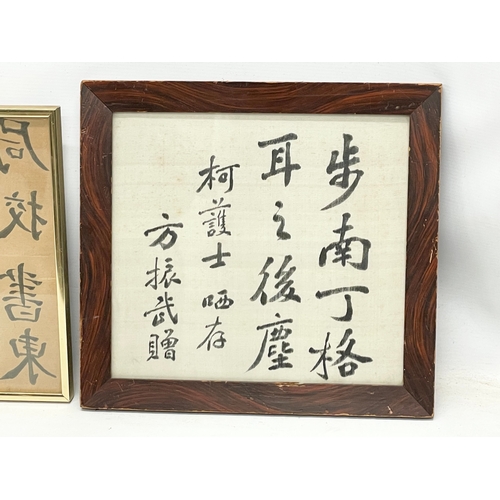 步南丁格
耳之後塵
柯護士哂存
方振武贈
局校書東